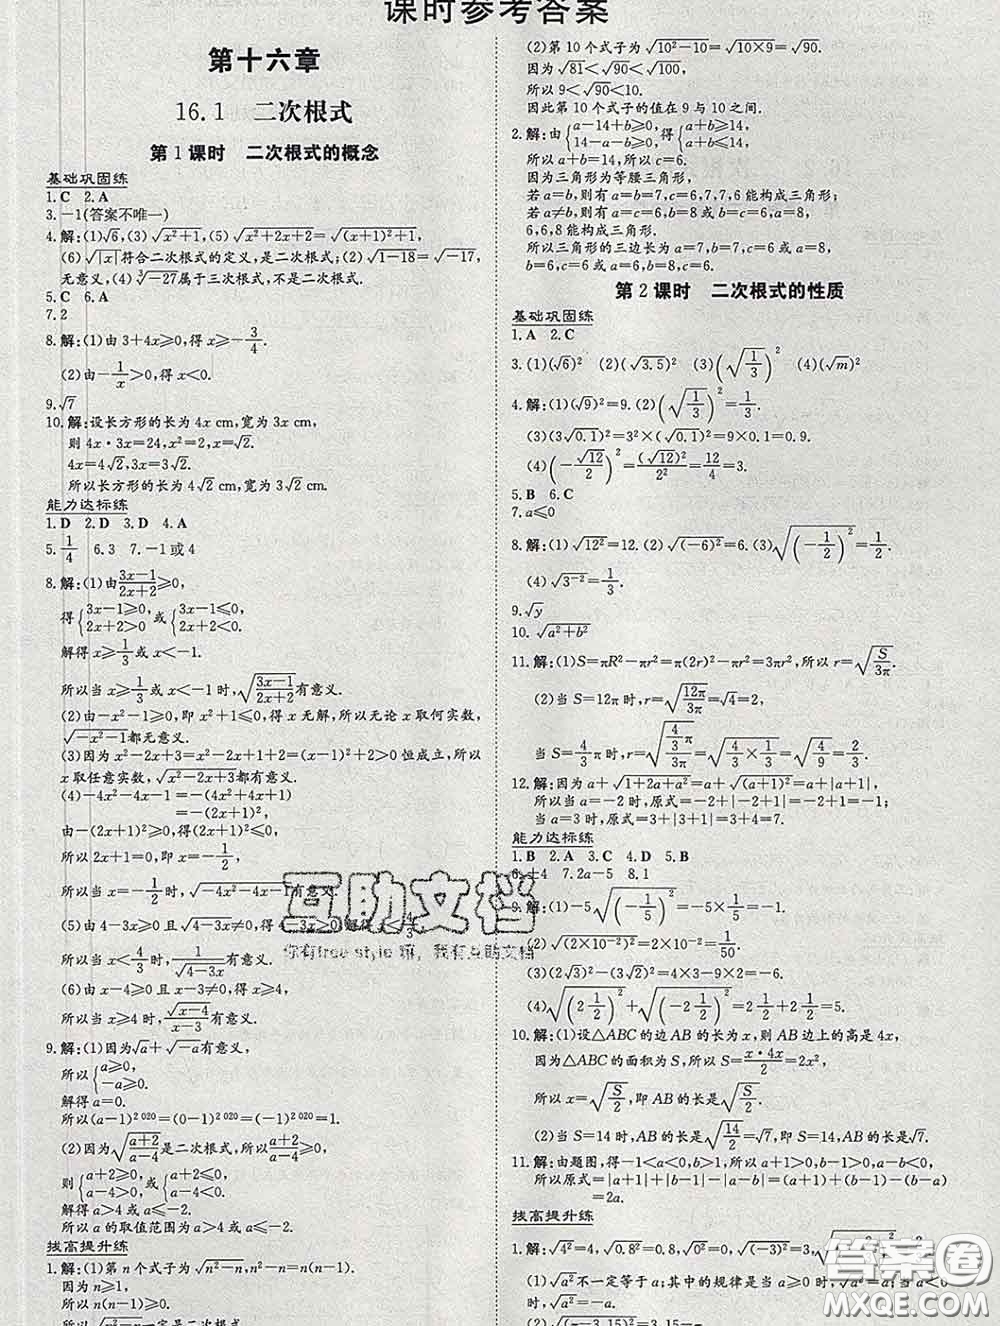 课时参考答案
第十六章
16.1 二次根式
第1课时 二次根式的概念
基础巩固练
1.C 2.A
3.-1(答案不唯一)
4.解:(1)√6,(3)√(x²+1),(5)√(x²+2x+2)=√((x+1)²+1),
(6)√|x|符合二次根式的定义,是二次根式;(2)√(1-18)=√-17,
无意义,(4)∛-27属于三次根式,不是二次根式.
5.C 6.A
7.2
8.解:(1)由3+4x≥0,得x≥-3/4.
(2)由-1/x>0,得x<0.
9.√7
10.解:设长方形的长为4x cm,宽为3x cm,
则4x·3x=24,x²=2,x=√2.
4x=4√2,3x=3√2.
所以长方形的长为4√2 cm,宽为3√2 cm.
能力达标练
1.D 2.D 3.D 4.A
5.1/4 6.3 7.-1或4
8.解:(1)由(3x-1)/(2x+2)≥0,
得{3x-1≥0, 2x+2>0 或{3x-1≤0, 2x+2<0.
解得x≥1/3或x<-1.
所以当x≥1/3或x<-1时,√((3x-1)/(2x+2))有意义.
(2)由-x²-1≥0,即x²+1≤0,得x无解,所以无论x取何实数,
√(-x²-1)都无意义.
(3)因为x²-2x+3=x²-2x+1+2=(x-1)²+2>0恒成立,所以
x取任意实数,√(x²-2x+3)都有意义.
(4)-4x²-4x-1=-(4x²+4x+1)
=-(2x+1)²,
由-(2x+1)²≥0,得(2x+1)²≤0,
所以2x+1=0,即x=-1/2,
所以当x=-1/2时,√(-4x²-4x-1)有意义.
(5)由4-3x≥0且√(4-3x)≠0,得4-3x>0,解得x<4/3,
所以当x<4/3时,1/√(4-3x)有意义.
(6)由x-4≥0且x-3≠0,得x≥4,
所以当x≥4时,√(x-4)/(x-3)有意义.
9.解:(1)因为√a+√-a有意义,
所以{a≥0, -a≥0.
解得a=0.
所以(a-1)^2020=(0-1)^2020=(-1)^2020=1.
(2)因为√((a+2)/(a-4))是二次根式,所以(a+2)/(a-4)≥0,
则{a+2≥0, a-4>0 或{a+2≤0, a-4<0.
解得a>4或a≤-2.
所以a的取值范围为a>4或a≤-2.
拔高提升练
1.解:(1)第n个式子为√(n²-n),
因为n≥1,
所以n(n-1)≥0.
(2)第10个式子为√(10²-10)=√(10×9)=√90.
因为√81<√90<√100,
所以9<√90<10.
因此第10个式子的值在9与10之间.
2.解:由{a-14+b≥0, 14-a-b≥0,得{a+b≥14, a+b≤14,
所以a+b=14,所以c=6.
因为三角形为等腰三角形,
若a=b,则有a=b=7,c=6,6,7,7能构成三角形;
若a≠b,则有a=c=6,b=8或b=c=6,a=8,
6,6,8能构成三角形.
所以三角形的三边长为a=7,b=7,c=6或a=8,
b=6,c=6或a=6,b=8,c=6.
第2课时 二次根式的性质
基础巩固练
1.A 2.C
3.(1)(√6)² (2)(√3.5)² (3)(√(1/3))² (4)(√m)²
4.解:(1)(√9)²=9.(2)(√(1/3))²=1/3.
(3)(3√0.1)²=3²×(√0.1)²=9×0.1=0.9.
(4)(-√12/2)²=(√12)²/2²=12/4=3.
5.B 6.C
7.a≤0
8.解:(1)√12²=12.(2)√(-6)²=6.(3)√(-1/2)²=1/2.
(4)√3⁻²=1/3.
9.√y
10.√(a²+b²)
11.解:(1)S=πR²-πr²=π(2r)²-πr²=3πr²,所以r=√(S/3π).
(2)当S=12π时,r=√(12π/3π)=√4=2,
当S=4/3π时,r=√((4/3)π/3π)=√(4/3×1/3)=√(4/9)=2/3.
12.解:因为a+√(1+2a+a²)=a+√(a+1)²=a+|a+1|,
所以当a=-2时,原式=-2+|-2+1|=-2+1=-1.
当a=3时,原式=3+|3+1|=3+4=7.
能力达标练
1.B 2.A 3.C 4.D 5.B
6.±4 7.2a-5 8.1
9.解:(1)-5√(-1/5)²=-5×1/5=-1.
(2)√(2×10⁻²)²=2×10⁻²=1/50.
(4)√(2 1/2)²+√(-2 1/2)²=2 1/2+2 1/2=5.
10.解:(1)设△ABC的边AB的长为x,则AB边上的高是4x,
因为△ABC的面积为S,所以S=x·4x/2=2x²,
所以x=√(S/2),即AB的长是√(S/2).
(2)当S=14时,AB的长是√(14/2)=√7,即S=14,AB的长是√7.
11.解:由题图,得-1<a<0,b>1,所以a+1>0,b-1>0,a-b<0,
所以原式=|a+1|+|b-1|-|a-b|=(a+1)+(b-1)-(b-a)
=2a.
拔高提升练
1.解:√4²=4,√0.8²=0.8,√0²=0,√(-3)²=3,
(1)√a²不一定等于a;其中的规律是当a≥0时,√a²=a;当a<0
时,√a²=-a.
互助文档
你有free style 嘛,我有互助文档
答案圈
MXQE.COM